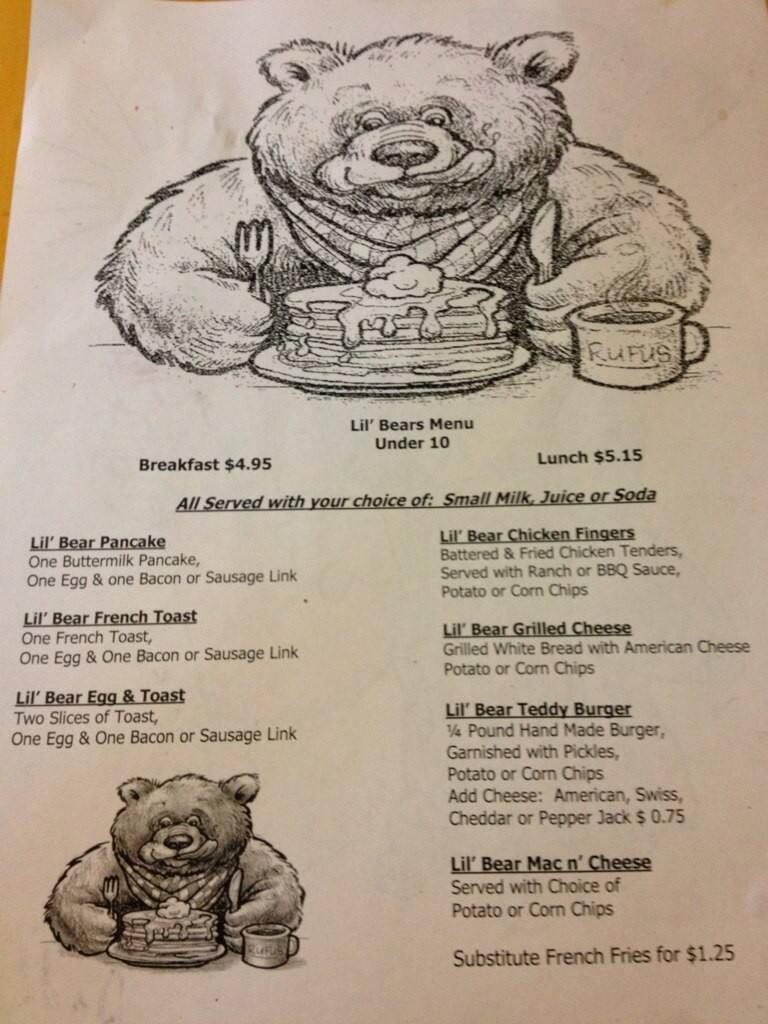 RUFUS
Lil' Bears Menu
Under 10
Breakfast $4.95
Lunch $5.15
All Served with your choice of: Small Milk, Juice or Soda
Lil' Bear Pancake
One Buttermilk Pancake,
One Egg & one Bacon or Sausage Link
Lil' Bear French Toast
One French Toast,
One Egg & One Bacon or Sausage Link
Lil' Bear Egg & Toast
Two Slices of Toast,
One Egg & One Bacon or Sausage Link
RUFUS
Lil' Bear Chicken Fingers
Battered & Fried Chicken Tenders,
Served with Ranch or BBQ Sauce,
Potato or Corn Chips
Lil' Bear Grilled Cheese
Grilled White Bread with American Cheese
Potato or Corn Chips
Lil' Bear Teddy Burger
¼ Pound Hand Made Burger,
Garnished with Pickles,
Potato or Corn Chips
Add Cheese: American, Swiss,
Cheddar or Pepper Jack $ 0.75
Lil' Bear Mac n' Cheese
Served with Choice of
Potato or Corn Chips
Substitute French Fries for $1.25